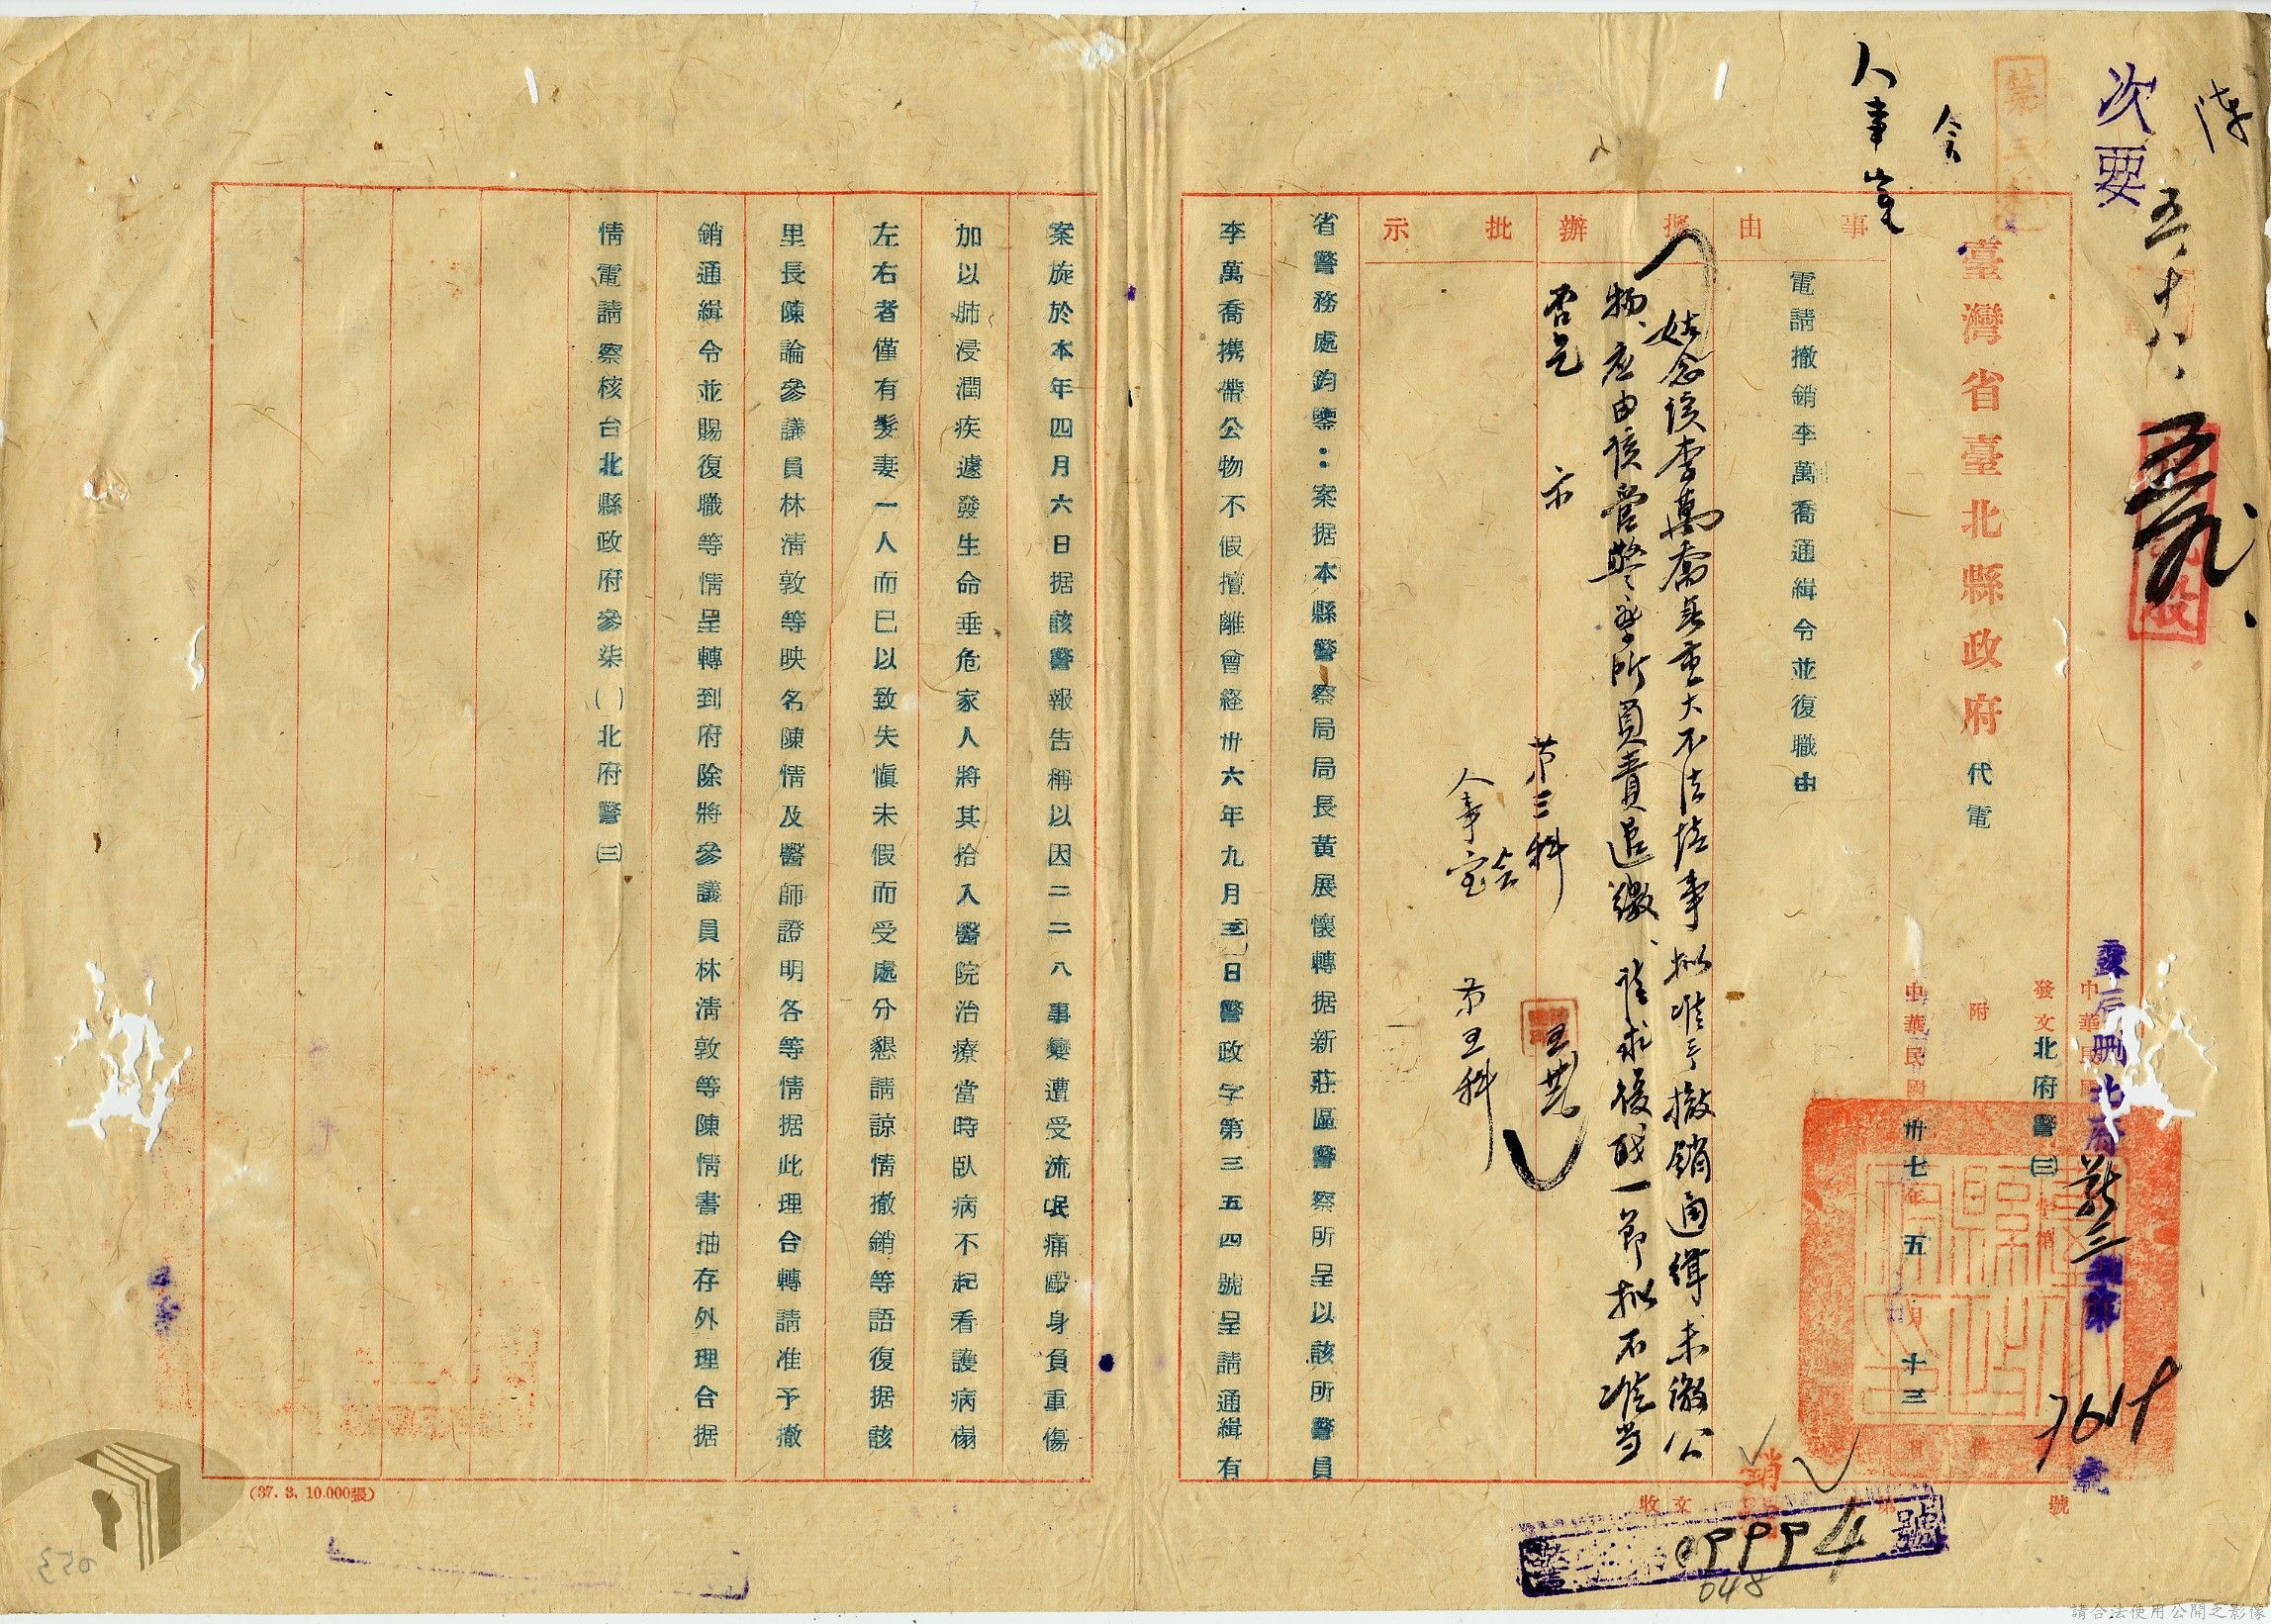 次要
五、十八、
會
人事室
臺灣省臺北縣政府
代電
發文北府警㈢
附
中華民國卅七年五月十三日
號
事由
電請撤銷李萬喬通緝令並復職由
擬辦
姑念該李萬喬無重大不法情事擬准予撤銷通緝未繳公
物、应由該管警察所負責追繳、請求復職一節拟不准当
否乞 示
第三科
會
人事室
第五科
批示
省警務處鈞鑒：案据本縣警察局局長黃展懷轉据新莊區警察所呈以該所警員
李萬喬携帶公物不假擅離曾経卅六年九月三日警政字第三五四號呈請通緝有
案旋於本年四月六日据該警報告稱以因二二八事變遭受流氓痛毆身負重傷
加以肺浸潤疾遽發生命垂危家人將其拾入醫院治療當時臥病不起看護病榻
左右者僅有髮妻一人而已以致失慎未假而受處分懇請諒情撤銷等語復据該
里長陳論參議員林淸敦等映名陳情及醫師證明各等情据此理合轉請准予撤
銷通緝令並賜復職等情呈轉到府除將參議員林淸敦等陳情書抽存外理合据
情電請察核台北縣政府參柒（）北府警㈢
收文
第
號
7619
09994
048
(37. 3. 10.000張)
053
請合法使用公開之影像